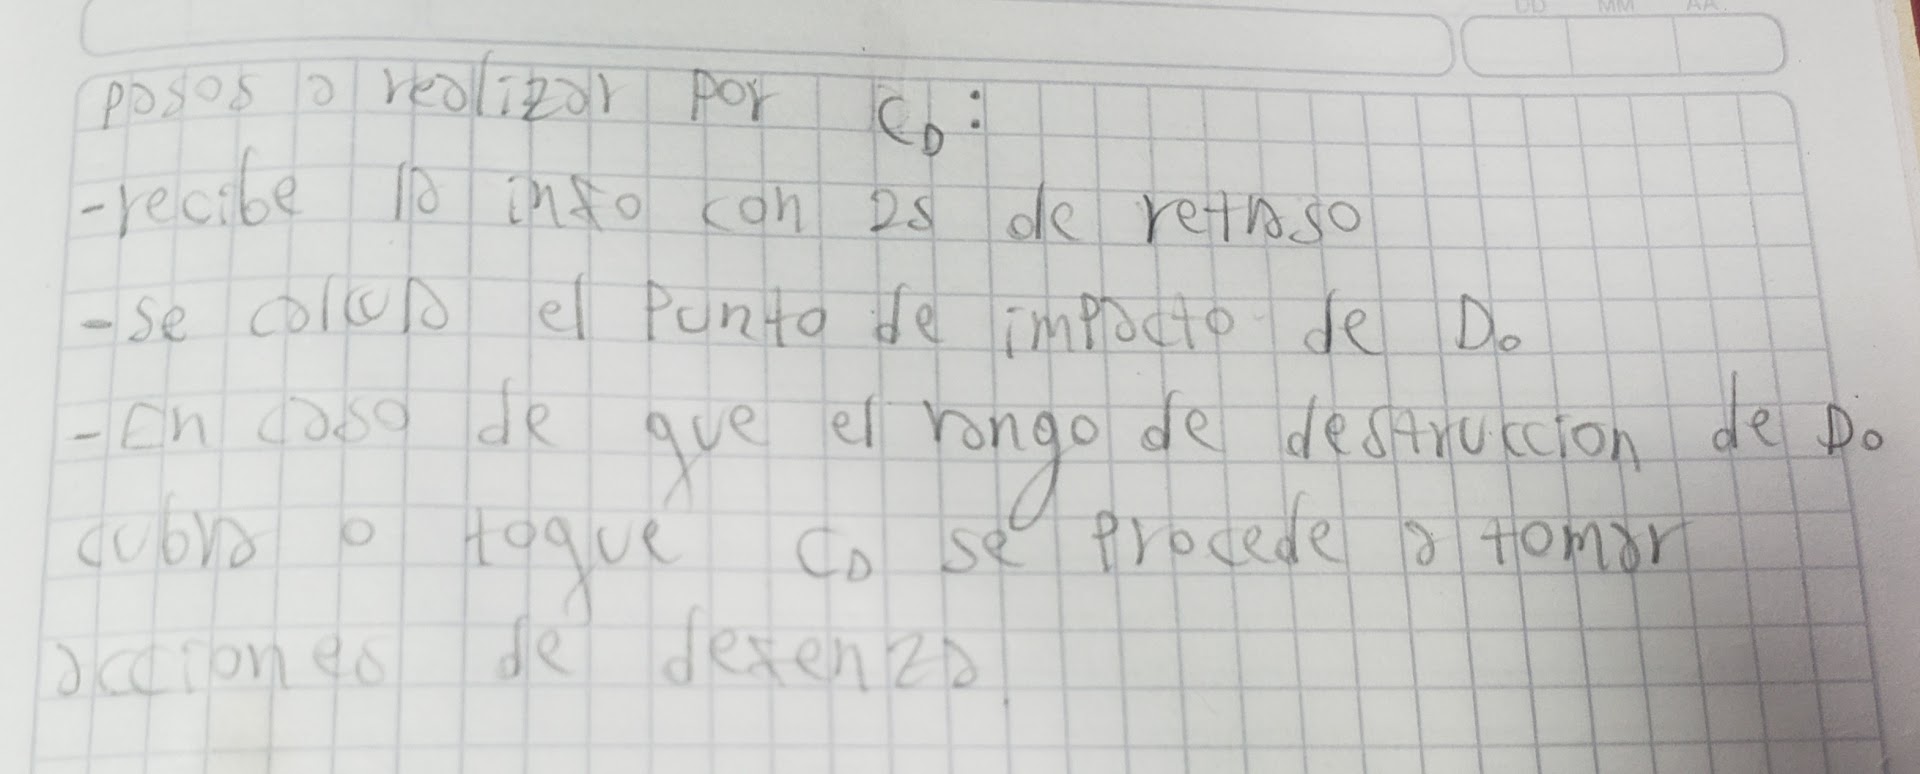 DD MM AA.
pasos a realizar por CD:
-recibe la info con 2s de retraso
-se calcula el Punto de impacto de Do
-En caso de que el rango de destruccion de Do
cubra o toque CD se procede a tomar
acciones de defenza.